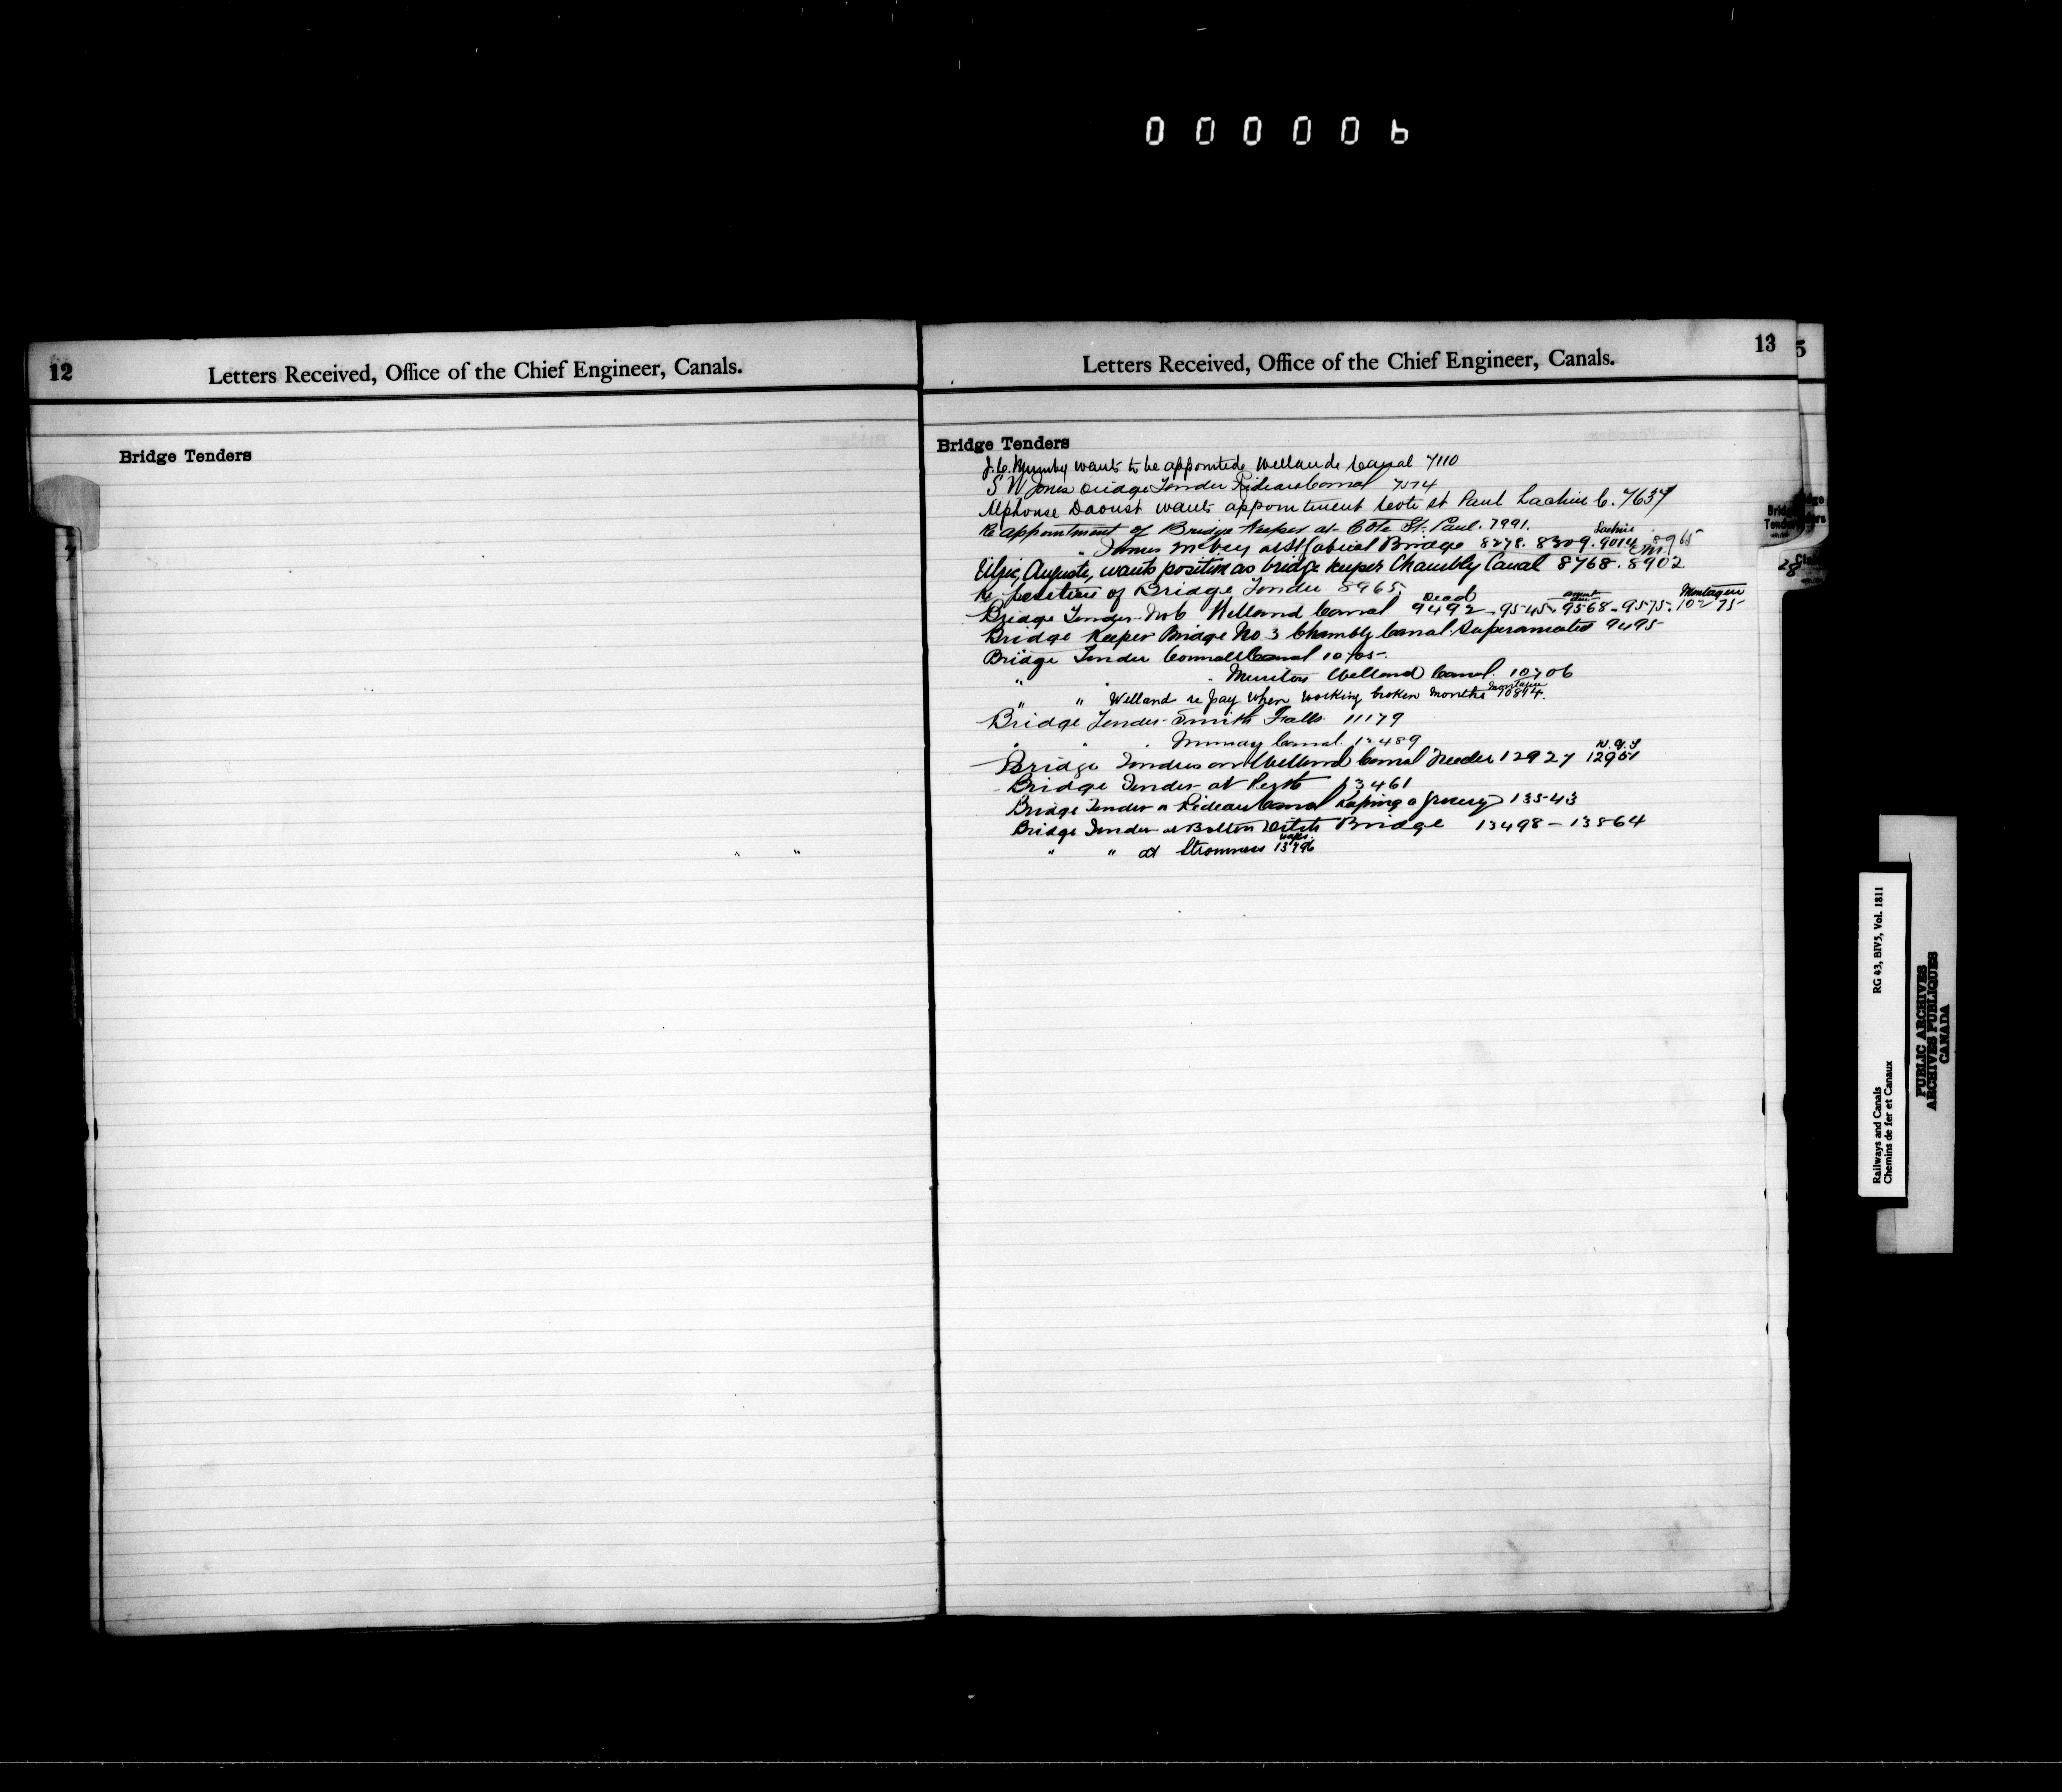 000006
12
Letters Received, Office of the Chief Engineer, Canals.
Bridge Tenders
13
Letters Received, Office of the Chief Engineer, Canals.
Bridge Tenders
wants to be appointed Welland Canal 7110
S W Jones bridge Tender Rideau Canal 7574
Alphonse Daoust wants appointment Cote St Paul Lachine C. 7637
Re appointment of Bridge Keeper at Cote St. Paul. 7991.
" James at St Gabriel Bridge 8278. 8309. Lachine 9014 8965
Auguste, wants position as bridge keeper Chambly Canal 8768. 8902
Re position of Bridge Tender 8965.
Bridge Tender No 6 Welland Canal Dead 9492 - 9545. 9568 - 9575. Montague 10275
Bridge Keeper Bridge No 3 Chambly Canal. Superannuated 9495
Bridge Tender Cornwall Canal
" " Welland Canal. 10706
" " Welland re pay when working broken months 10894.
Bridge Tender Smith Falls 11179
" " Murray Canal. 12489
Bridge Tenders on Welland Canal Feeder 12927 12951
Bridge Tender at Perth 13461
Bridge Tender on Rideau Canal keeping a grocery 13543
Bridge Tender at Bolton Ditch Bridge 13498 - 13864
" " at Stromness 13796
Railways and Canals
Chemins de fer et Canaux
RG 43, BIV5, Vol. 1811
PUBLIC ARCHIVES
ARCHIVES PUBLIQUES
CANADA